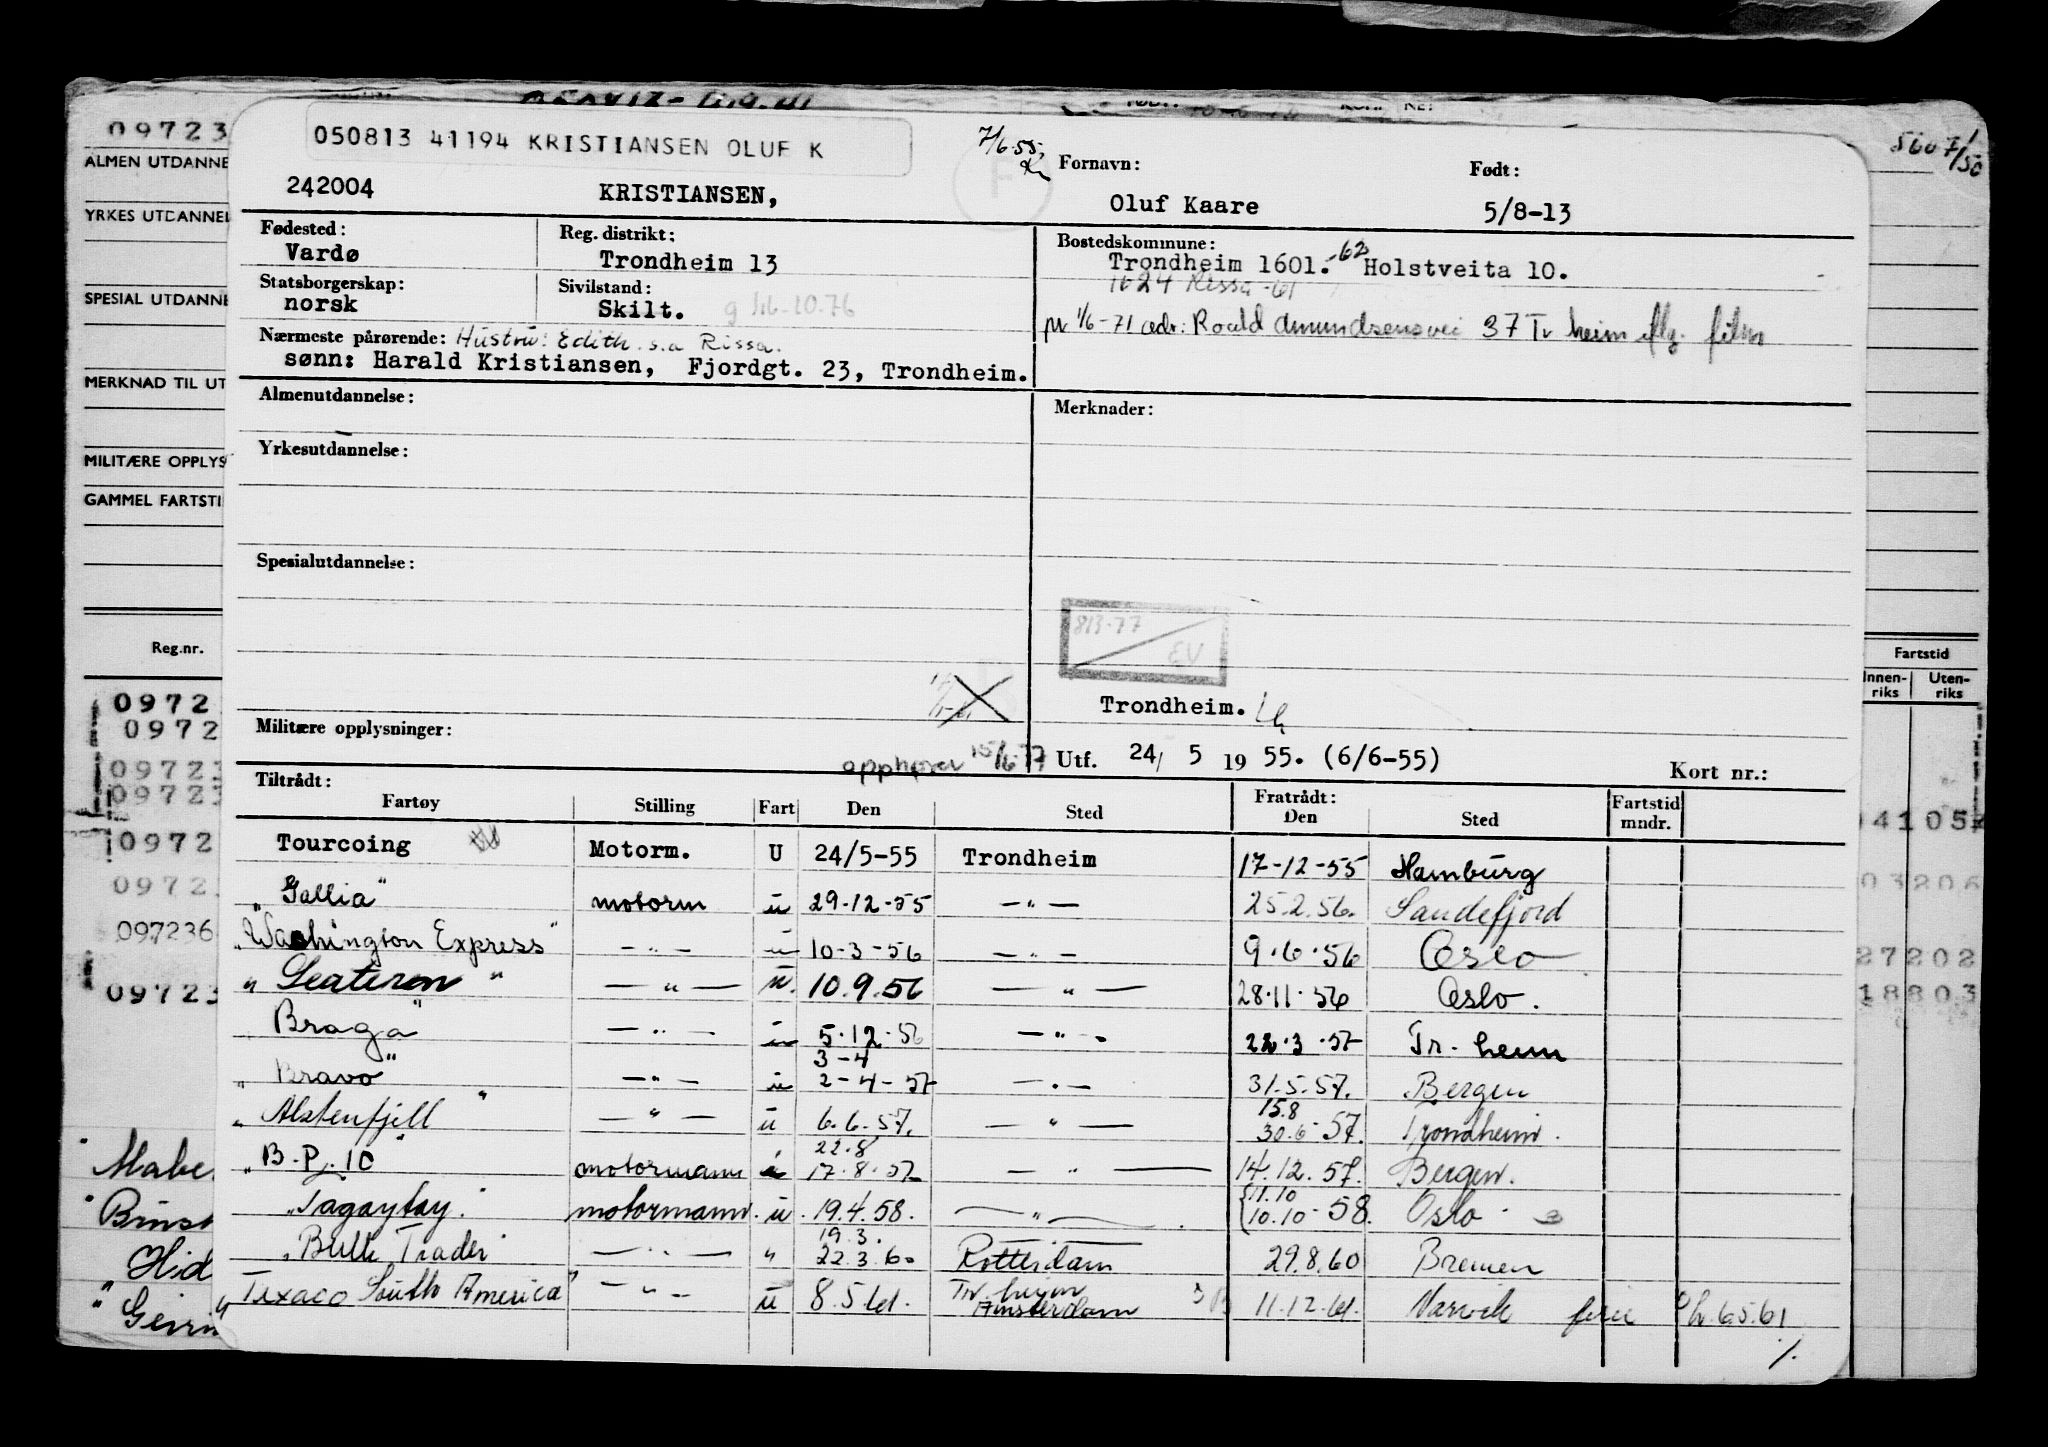 09723
ALMEN UTDANNE
YRKES UTDANNEL
SPESIAL UTDANNE
MERKNAD TIL UT
MILITÆRE OPPLYS
GAMMEL FARTSTI
Reg.nr.
0972
0972
09723
09723
0972
0972
097236
09723
5607/50
Fartstid
Innen-riks Uten-riks
41052
03206
27202
18803
050813 41194 KRISTIANSEN OLUF K
7/6.55.
242004 KRISTIANSEN,
Fornavn: Født:
Oluf Kaare 5/8-13
Fødested: Reg. distrikt: Bostedskommune:
Vardø Trondheim 13 Trondheim 1601. -62 Holstveita 10.
1624 Rissa -61
Statsborgerskap: Sivilstand:
norsk Skilt. g 16-10.76
pr 1/6-71 adr: Roald Amundsensvei 37 Tr heim flg. film
Nærmeste pårørende: Hustru: Edith s.a Rissa.
sønn: Harald Kristiansen, Fjordgt. 23, Trondheim.
Almenutdannelse: Merknader:
Yrkesutdannelse:
Spesialutdannelse:
813-77
EV
Trondheim.
Militære opplysninger:
opphører 15/6-77 Utf. 24/ 5 19 55. (6/6-55) Kort nr.:
Tiltrådt: Fratrådt:
Fartøy Stilling Fart Den Sted Den Sted Fartstid mndr.
Tourcoing Motorm. U 24/5-55 Trondheim 17-12-55 Hamburg
"Gallia" motorm u 29-12-55 —"— 25.2.56. Sandefjord
"Washington Express" —"— u 10-3-56 —"— 9.6.56 Oslo
"Seateren" —"— u. 10.9.56 —"— 28.11.56 Oslo.
Braga" —"— u 5.12.56 —"— 22.3.57 Tr.heim
3-4
"Bravo" —"— u 2-4-57 —"— 31.5.57. Bergen
15.8
"Alstenfjell" —"— u 6.6.57. —"— 30.6-57. Trondheim.
22.8
"B.P. 10" motormann u 17.8.57 —"— 14.12.57. Bergen.
11.10
"Tagaytay. motormann. u. 19.4.58. —"— 10.10-58. Oslo
19.3.
"Bulk Trader" —"— " 22.3.60 Rotterdam 29.8.60 Bremen
Tr.heim
"Texaco South America" —"— u 8.5.61. Amsterdam 11.12.61. Narvik ferie 6.5.61
"Mabe
"Brinst
Hid
"Geirn